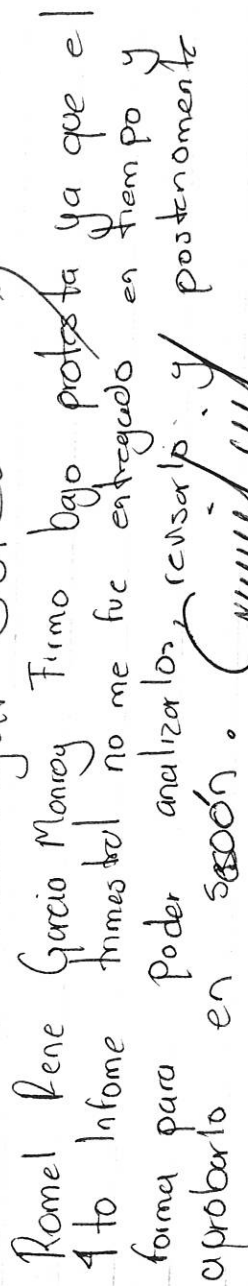 Romel Rene Garcia Monroy Firmo bajo protesta ya que el
4 to Infome trimestral no me fue entregado en tiempo y
forma para poder analizarlos, revisarlo y posteriormente
aprobarlo en sesión.